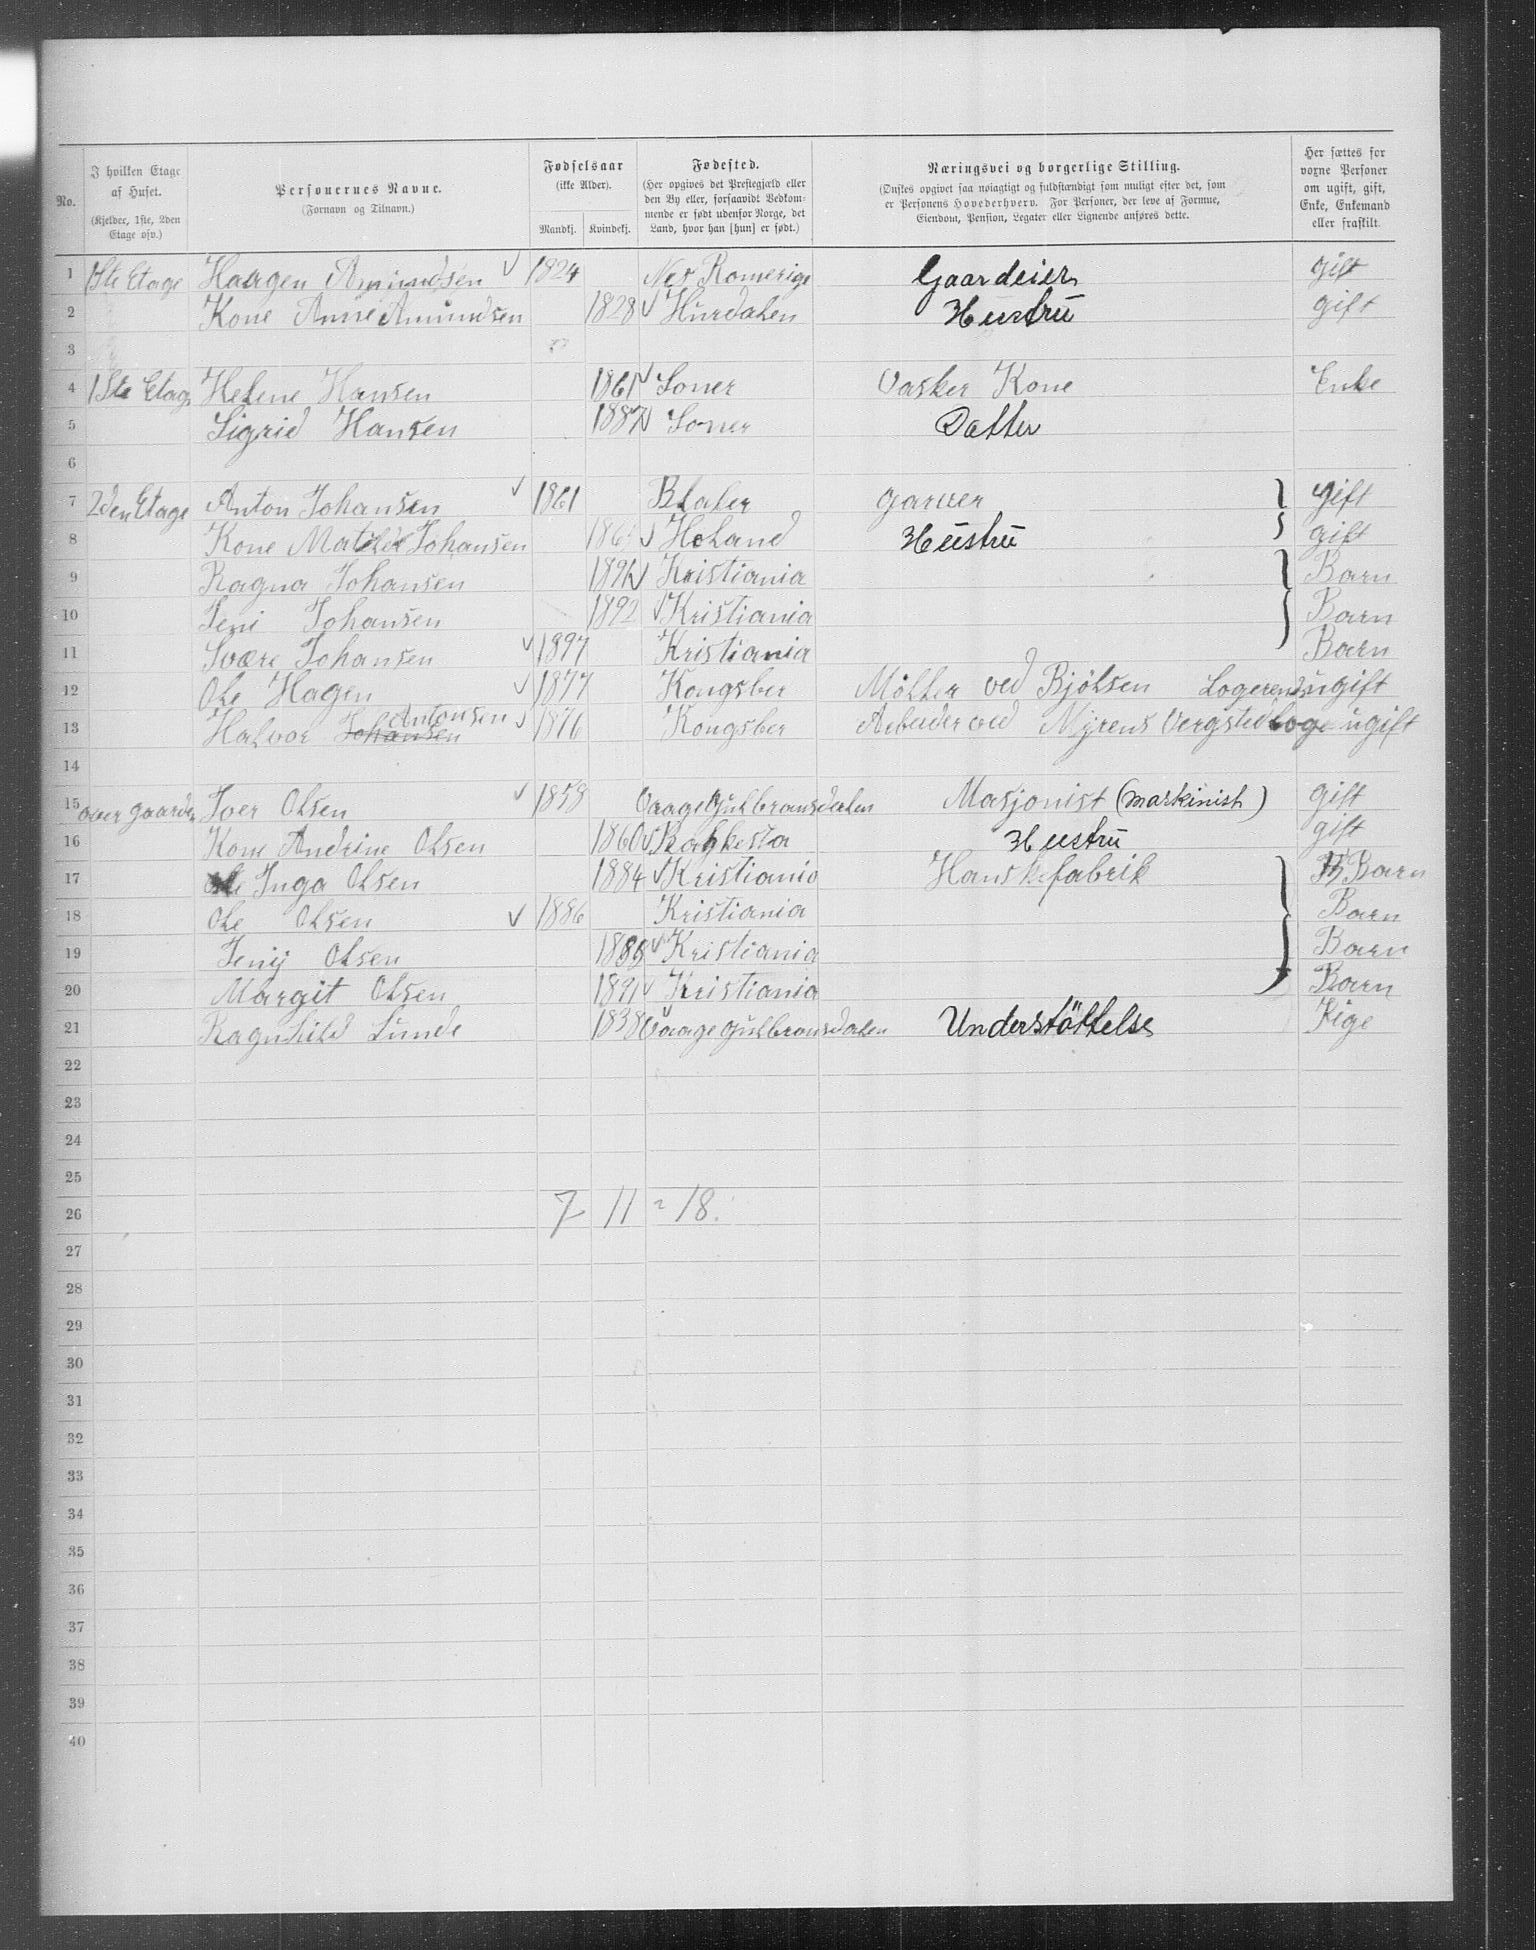 No.
I hvilken Etage af Huset. (Kjelder, 1ste, 2den Etage osv.)
Personernes Navne. (Fornavn og Tilnavn.)
Fødselsaar (ikke Alder). Mandkj. Kvindekj.
Fødested. (Her opgives det Præstegjæld eller den By eller, forsaavidt Vedkommende er født udenfor Norge, det Land, hvor han [hun] er født.)
Næringsvei og borgerlige Stilling. (Ønskes opgivet saa nøiagtigt og fuldstændigt som muligt efter det, som er Personens Hovederhverv. For Personer, der leve af Formue, Eiendom, Pension, Legater eller Lignende anføres dette.
Her sættes for voxne Personer om ugift, gift, Enke, Enkemand eller fraskilt.
1 1ste Etage Haagen Amundsen √ 1824 Nes Romerige Gaardeier gift
2 Kone Anne Amundsen 1828 √ Hurdalen Hustru gift
3
4 1ste Etag Helene Hansen 1861 √ Soner Vasker Kone Enke
5 Sigrid Hansen 1887 √ Soner Datter
6
7 2den Etage Anton Johansen √ 1861 Blaker garver } gift
8 Kone Johansen √ Holand Hustru gift
9 Ragna Johansen √ Kristiania } Barn
10 Jeni Johansen 1892 √ Kristiania Barn
11 Svære Johansen √ 1897 Kristiania Barn
12 Ole Hagen √ 1877 Kongsber Møller ved Bjølsen Logerende ugift
13 Halvor Johansen Antonsen √ 1876 Kongsber Arbeider ved Myrens Vergsted Loge ugift
14
15 over gaarden Iver Olsen √ 1858 Vaage Gulbransdalen Masjonist (markinist) gift
16 Kone Andrine Olsen 1860 √ Bakkesta Hustru gift
17 Inga Olsen 1884 √ Kristiania Hanskefabrik } Barn
18 Ole Olsen √ 1886 Kristiania Barn
19 Jenij Olsen √ Kristiania Barn
20 Margit Olsen 1891 √ Kristiania Barn
21 Ragnhild Lunde 1838 Vaage Gulbransdalen Understöttelse Pige
22
23
24
25
26 7 11 = 18.
27
28
29
30
31
32
33
34
35
36
37
38
39
40